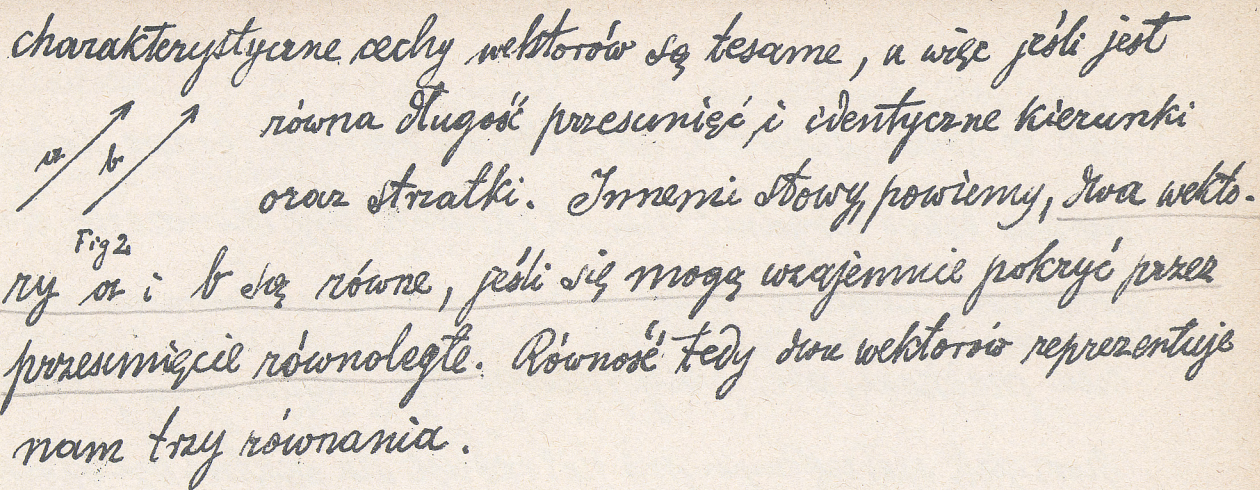 charakterystyczne cechy wektorów są tesame, a więc jeśli jest
równa długość przesunięć, i identyczne kierunki
a b
oraz strzałki. Innemi słowy, powiemy, dwa wekto-
Fig 2.
ry a i b są równe, jeśli się mogą wzajemnie pokryć przez
przesunięcie równoległe. Równość tedy dwu wektorów reprezentuje
nam trzy równania.